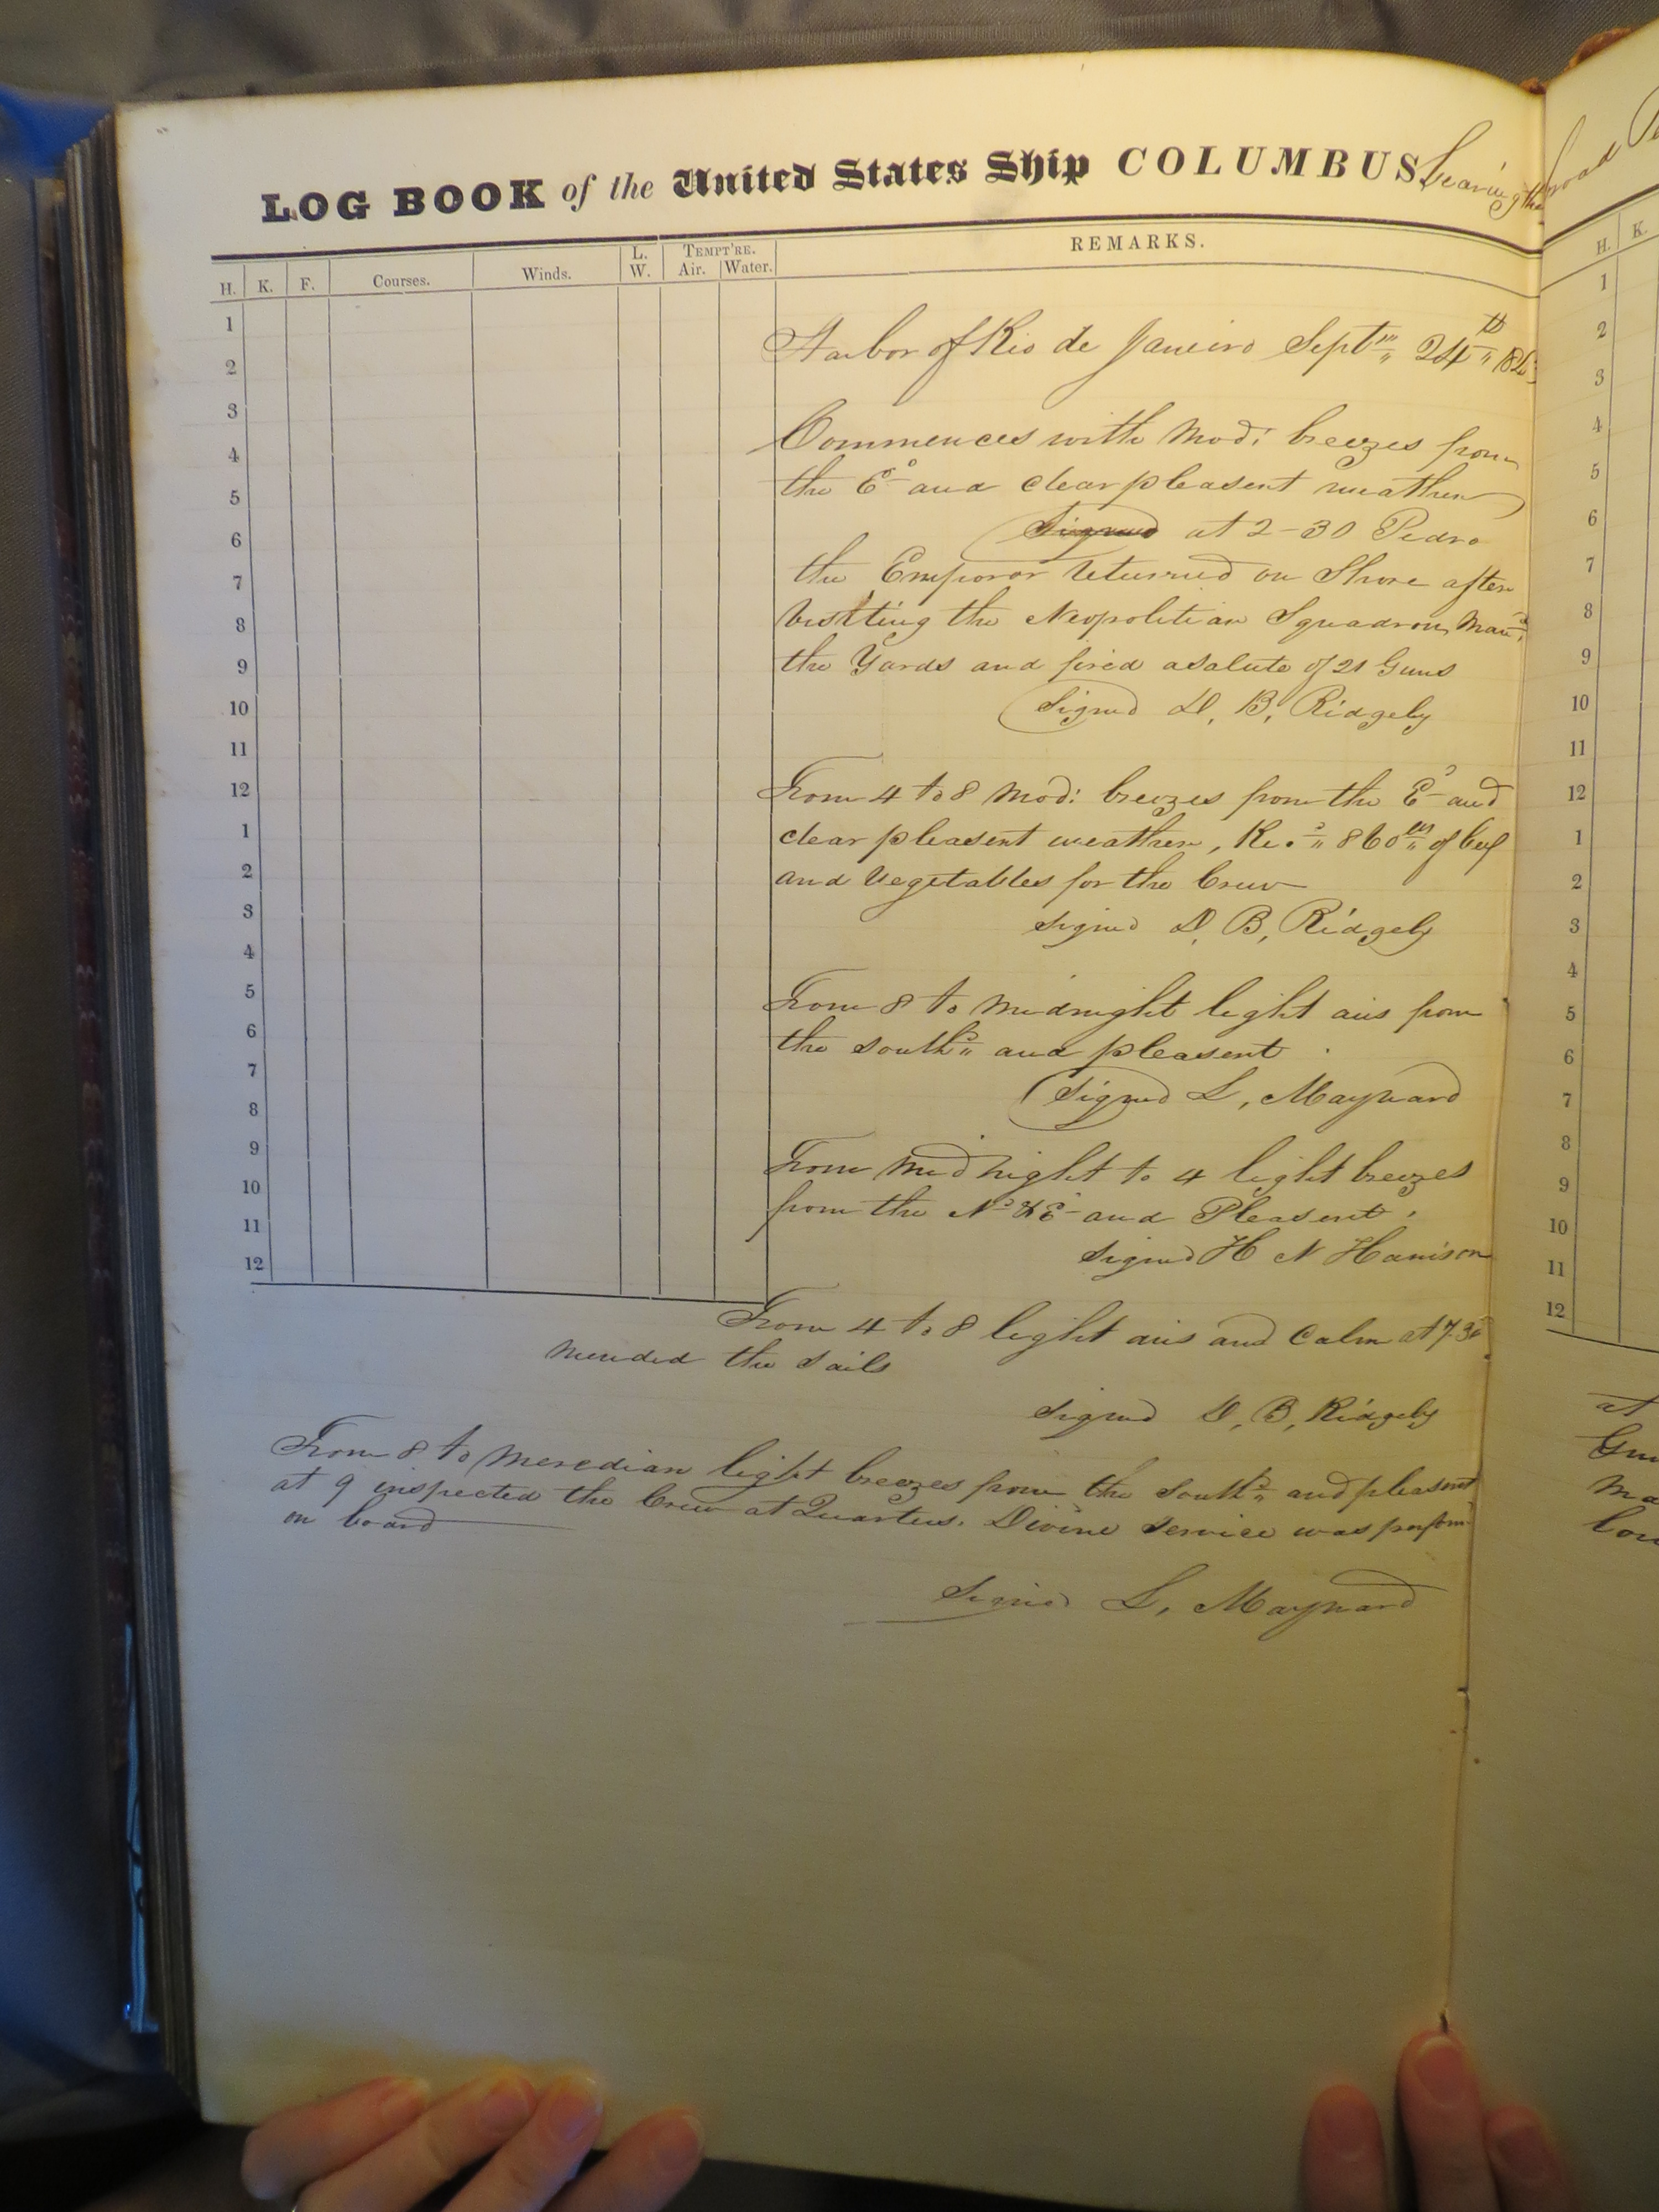 LOG BOOK of the United States Ship COLUMBUS Bearing the
H. K. F. Courses. Winds. L. W. TEMPT'RE. Air. Water. REMARKS.
1
2
3
4
5
6
7
8
9
10
11
12
1
2
3
4
5
6
7
8
9
10
11
12
Harbor of Rio de Janeiro Septm 24th
Commences with Mod: breezes from
the Ed and clear pleasent weather
Signed at 2-30 Pedro
the Emporor returned on Shore after
visiting the Neopolitian Squadron, Man'd
the Yards and fired a salute of 21 Guns
Signed D, B, Ridgely
From 4 to 8 Mod: breezes from the Ed and
clear pleasent weather, Rec.d 860 lbs of beef
and Vegetables for the Crew
Signed D, B, Ridgely
From 8 to Midnight light airs from
the southd and pleasent
Signed L, Maynard
From Midnight to 4 light breezes
from the Nd & Ed and Pleasent.
Signed H N Harrison
From 4 to 8 light airs and Calm at 7.30
mended the Sails
Signed D, B, Ridgely
From 8 to Meredian light breezes from the Southd and pleasent
at 9 inspected the Crew at Quarters. Divine Service was perform'd
on board
Signed L, Maynard
H. K.
1
2
3
4
5
6
7
8
9
10
11
12
1
2
3
4
5
6
7
8
9
10
11
12
at